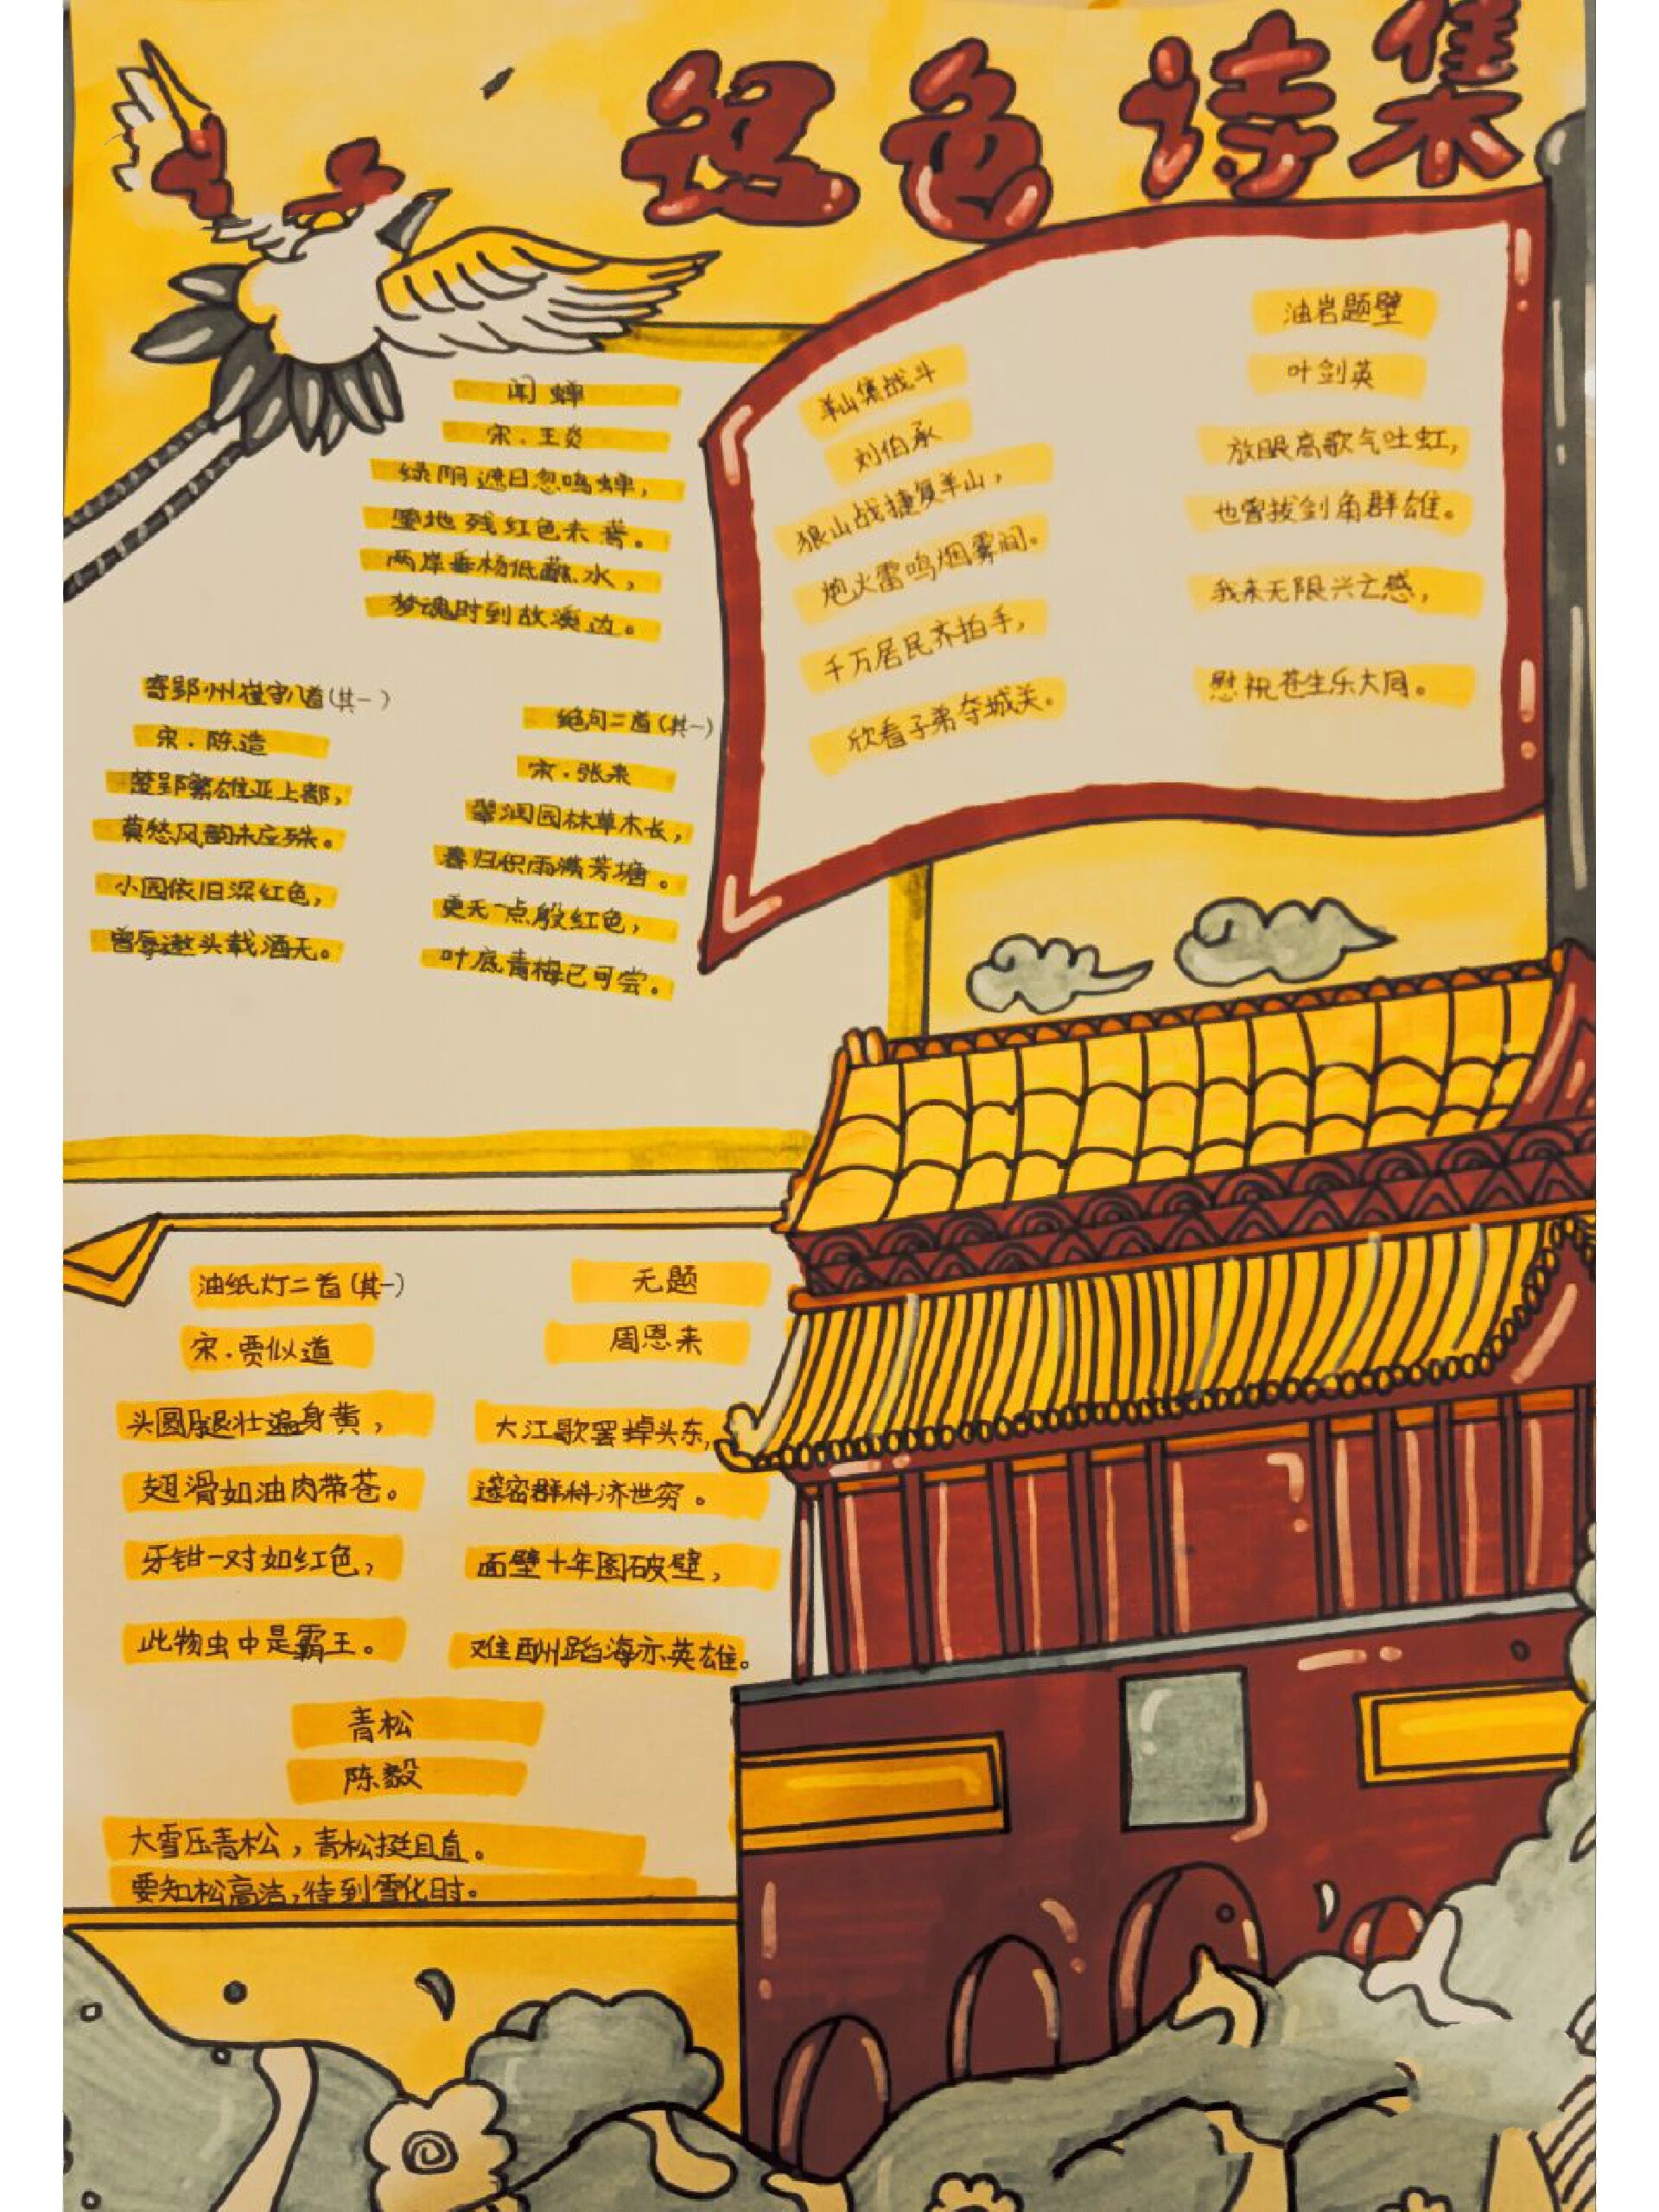 红色诗集
闻蝉
宋.王炎
绿阴遮日忽鸣蝉，
堕地残红色未蔫。
两岸垂杨低蘸水，
梦魂时到故溪边。
寄郢州崔守八首(其一)
宋.陈造
楚郢繁雄亚上都，
莫愁风韵未应殊。
小园依旧深红色，
曾辱遨头载酒无。
绝句二首(其一)
宋.张耒
翠润园林草木长，
春归积雨满芳塘。
更无一点殷红色，
叶底青梅已可尝。
羊山集战斗
刘伯承
狼山战捷复羊山，
炮火雷鸣烟雾间。
千万居民齐拍手，
欣看子弟夺城关。
油岩题壁
叶剑英
放眼高歌气吐虹，
也曾拔剑角群雄。
我来无限兴亡感，
慰祝苍生乐大同。
油纸灯二首(其一)
宋.贾似道
头圆腿壮遍身黄，
翅滑如油肉带苍。
牙钳一对如红色，
此物虫中是霸王。
无题
周恩来
大江歌罢掉头东，
邃密群科济世穷。
面壁十年图破壁，
难酬蹈海亦英雄。
青松
陈毅
大雪压青松，青松挺且直。
要知松高洁，待到雪化时。